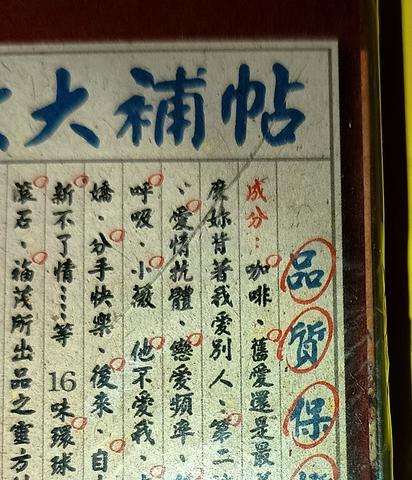 大補帖
品質保
成分：咖啡、舊愛還是最
麼妳背著我愛別人、第二
、愛情抗體、戀愛頻率、
呼吸、小薇、他不愛我、
嬌、分手快樂、後來、自
新不了情……等16味環球
滾石、福茂所出品之靈方